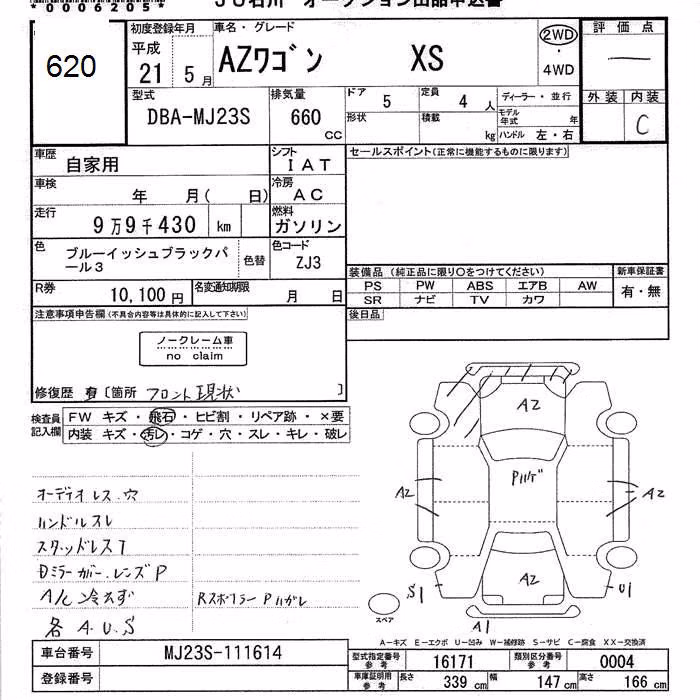 *0006205*
ＪＵ石川　オークション出品申込書
620
初度登録年月
平成
21 5 月
車名・グレード
AZワゴン XS
2WD
・
4WD
評価点
型式
DBA-MJ23S
排気量
660 CC
ドア 5
定員 4 人
ディーラー・並行
形状
積載 kg
モデル年式 年
ハンドル 左・右
外装 内装
C
車歴 自家用
シフト IAT
セールスポイント(正常に機能するものに限ります)
車検 年 月( 日)
冷房 AC
走行 9万9千430 km
燃料 ガソリン
色 ブルーイッシュブラックパール3
色替
色コード ZJ3
装備品 (純正品に限り○をつけてください)
新車保証書
PS PW ABS エアB AW
有・無
SR ナビ TV カワ
R券 10,100円
名変通知期限 月 日
後日品
注意事項申告欄(不具合内容等は具体的に記入して下さい)
ノークレーム車
no claim
修復歴 有 〔箇所 フロント現状 〕
検査員記入欄
FW キズ・飛石・ヒビ割・リペア跡・×要
内装 キズ・汚レ・コゲ・穴・スレ・キレ・破レ
オーディオレス.穴
ハンドルスレ
スタッドレスT
Dミラーカバー.レンズP
A/C 冷えず
Rスポイラー Pハガレ
各 A.U.S
AZ
Pハゲ
AZ
AZ
AZ
S1
U1
A1
スペア
A－キズ E－エクボ U－凹み W－補修跡 S－サビ C－腐食 XX－交換済
車台番号 MJ23S-111614
登録番号
型式指定番号 参考 16171
類別区分番号 参考 0004
車庫証明用 参考
長さ 339 cm 幅 147 cm 高さ 166 cm